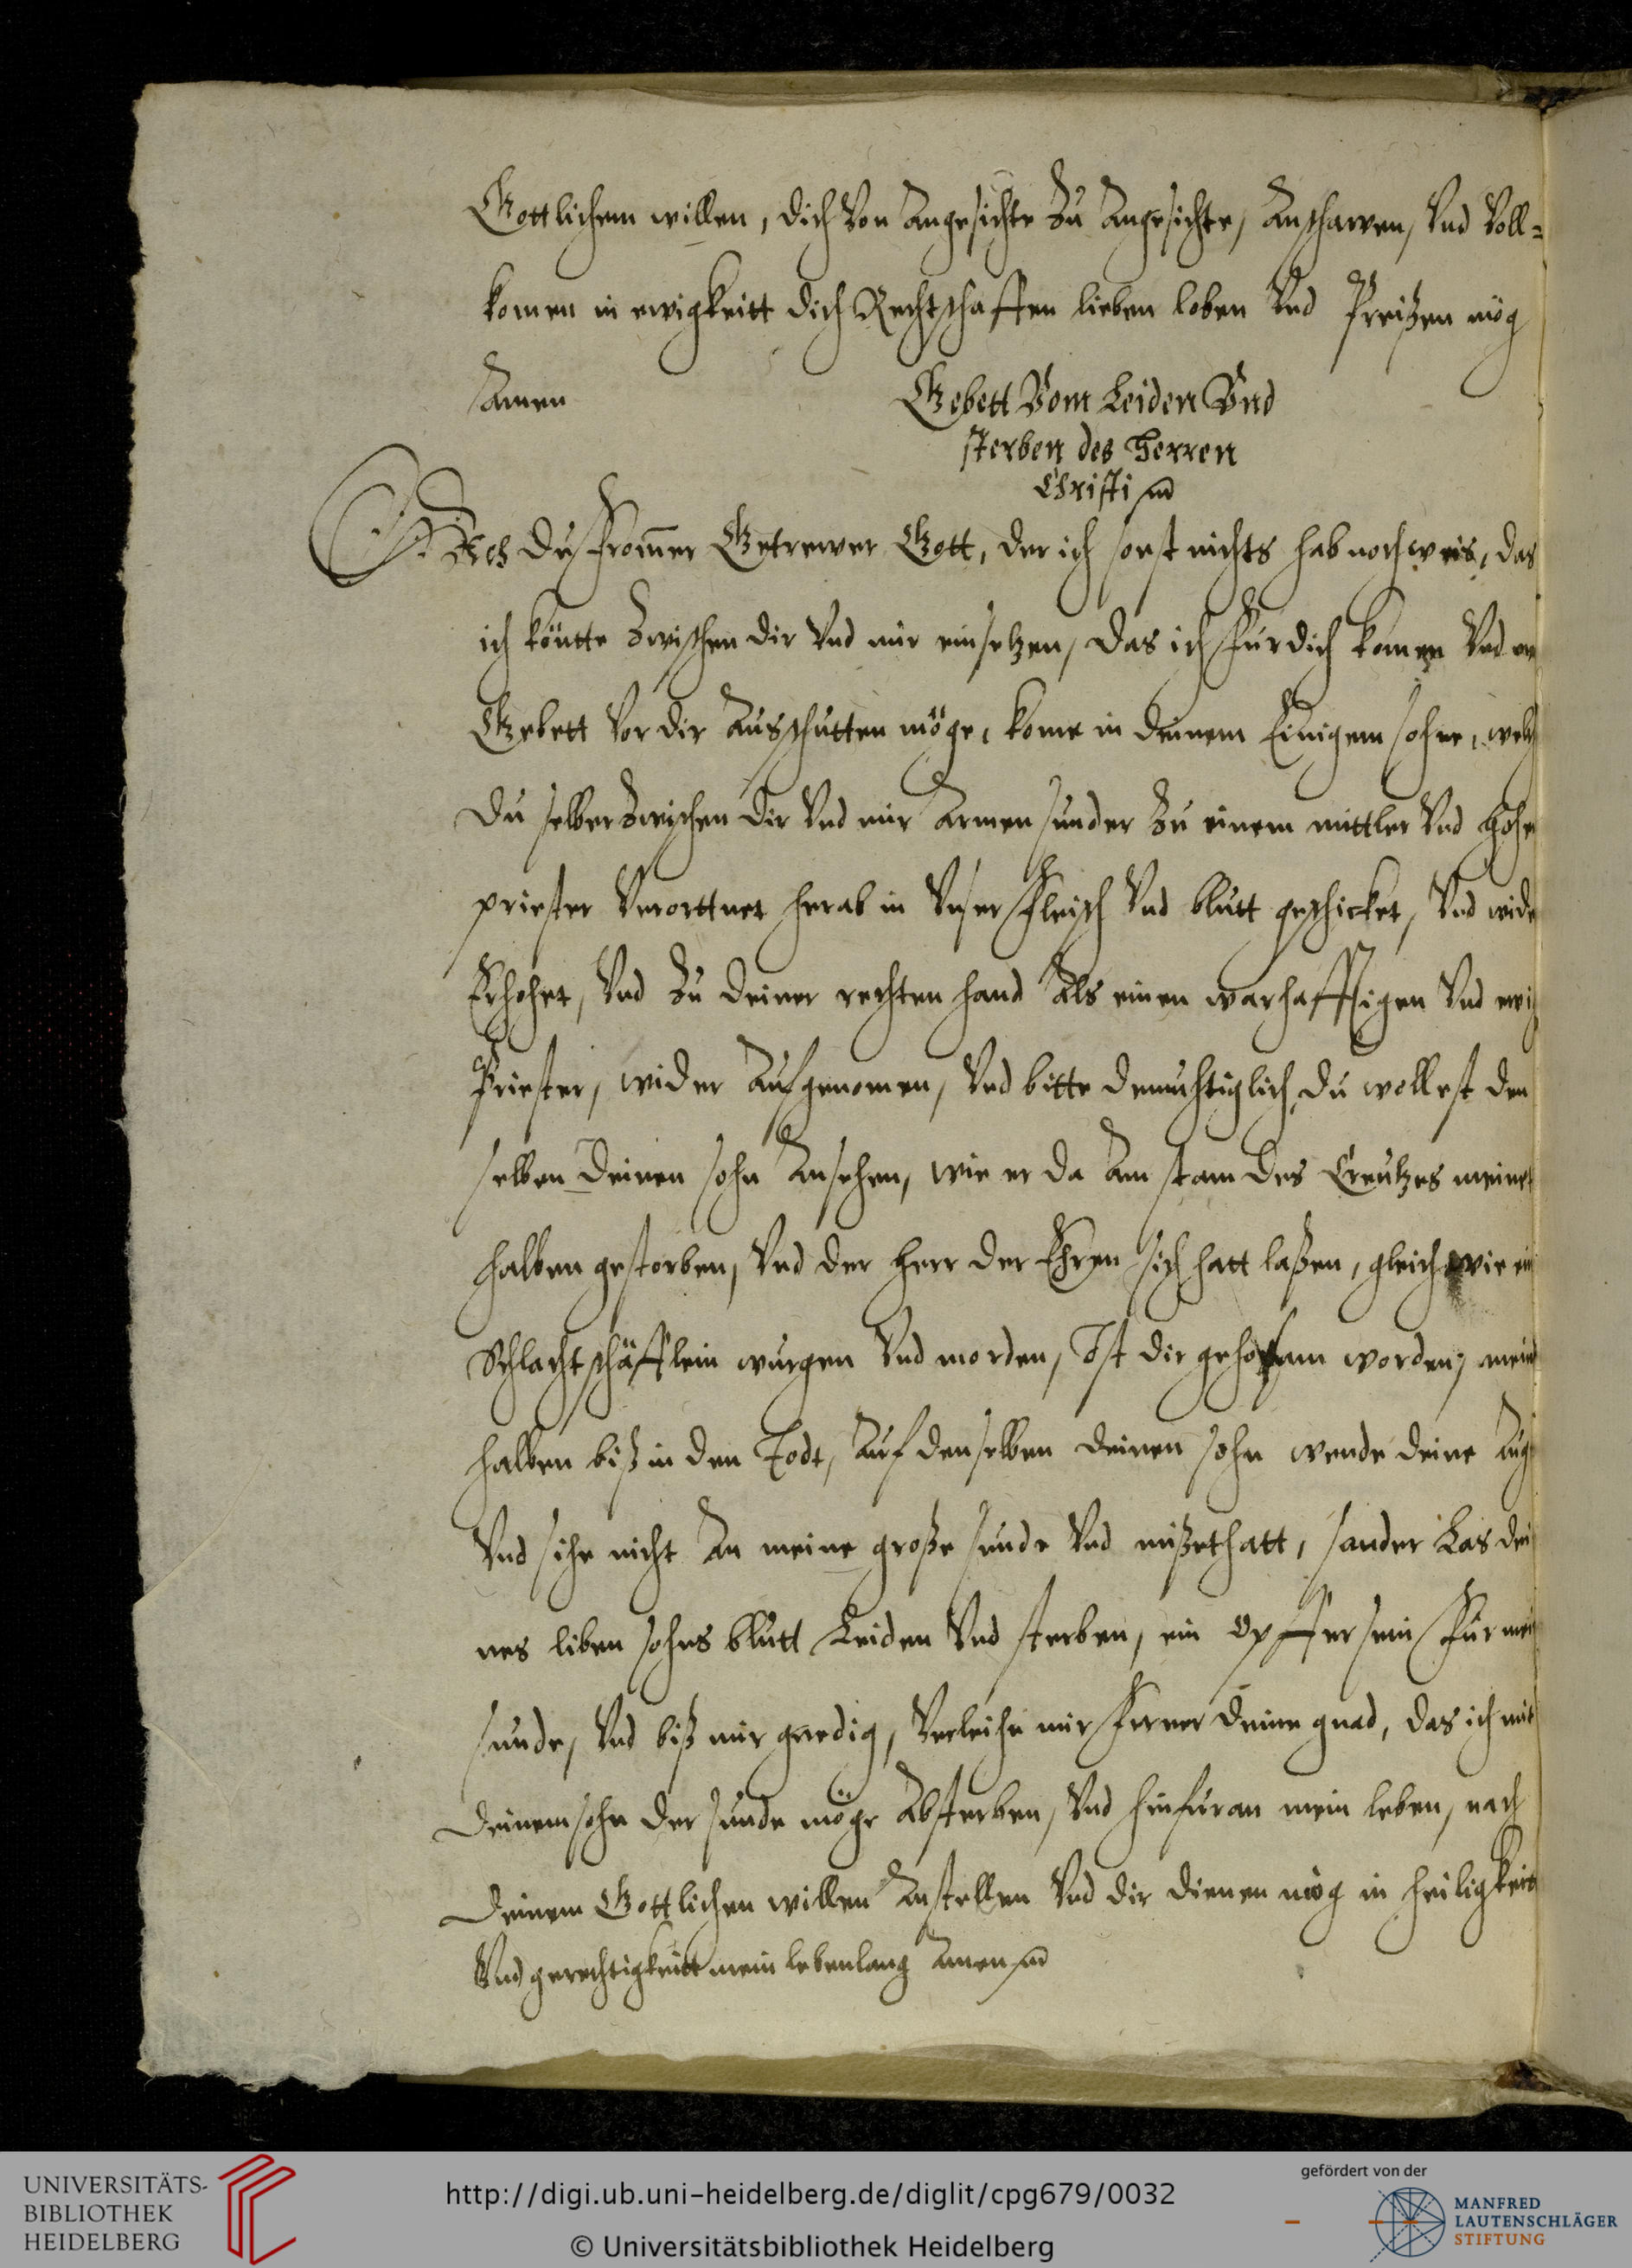 Gottlichem willen, dich Von Angesichte Zu Angesichte, Anschawen, Vnd Voll=
komen in ewigkeitt dich Rechtschaffen lieben loben Vnd Preißen mög
Amen
Gebett Vom Leiden Vnd
sterben des Herren
Christi
Ach Du frommer Getrewer Gott, der ich sonst nichts hab noch weis, das
ich köntte Zwischen dir Vnd mir einsetzen, das ich fur dich komen Vnd
Gebett Vor dir Ausschutten möge, kome in deinem Einigem sohne, welch
Du selber Zwischen dir Vnd mir Armen sunder Zu einem mittler Vnd hohe
priester Verorttnet herab in Vnser fleisch Vnd blutt geschicket, Vnd wide
Erhohet, Vnd Zu deiner rechten hand Als einen warhafftigen Vnd ewig
Priester, wider Aufgenomen, Vnd bitte demuhtiglich du wollest den
selben deinen sohn Ansehen, wie er da Am stam des Creutzes meinet
halben gestorben, Vnd der herr der Ehren sich hatt laßen, gleich wie ein
Schlachtschäfflein wurgen Vnd morden, Ist dir gehorsam worden, meinet
halben biß in den Todt, Auf denselben deinen sohn wende deine Aug
Vnd sihe nicht An meine große sunde Vnd mißethatt, sonder Las dei
nes liben sohns blutt Leiden Vnd sterben, ein Opffer sein fur mei
sunde, Vnd biß mir gnedig, Verleihe mir ferner deine gnad, das ich mit
deinem sohn der sunde möge Absterben, Vnd hinfuran mein leben, nach
deinem Gottlichen willen Anstellen Vnd dir dienen mög in heiligkeitt
Vnd gerechtigkeitt mein lebenlang Amen
UNIVERSITÄTS-
BIBLIOTHEK
HEIDELBERG
http://digi.ub.uni-heidelberg.de/diglit/cpg679/0032
© Universitätsbibliothek Heidelberg
gefördert von der
MANFRED
LAUTENSCHLÄGER
STIFTUNG